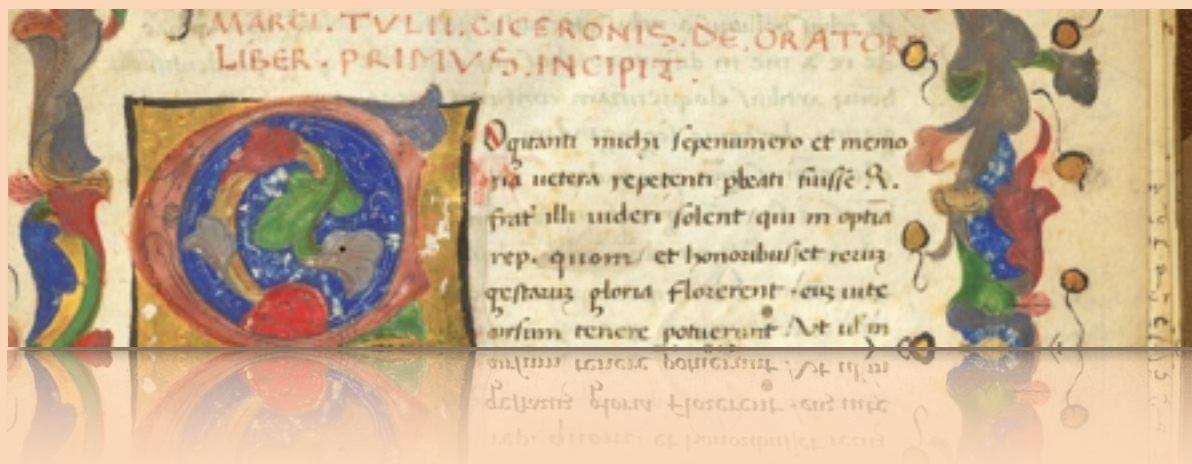 MARCI.TVLII.CICERONIS.DE.ORATOR
LIBER.PRIMVS.INCIPIT.
Ogitanti michi sepenumero et memo
ria uetera repetenti pbeati fuisse Q.
frat' illi uideri solent qui in optīa
rep. quom et honoribus et reruꝫ
gestaruꝫ gloria florerent euꝫ uite
cursum tenere potuerunt Vt in